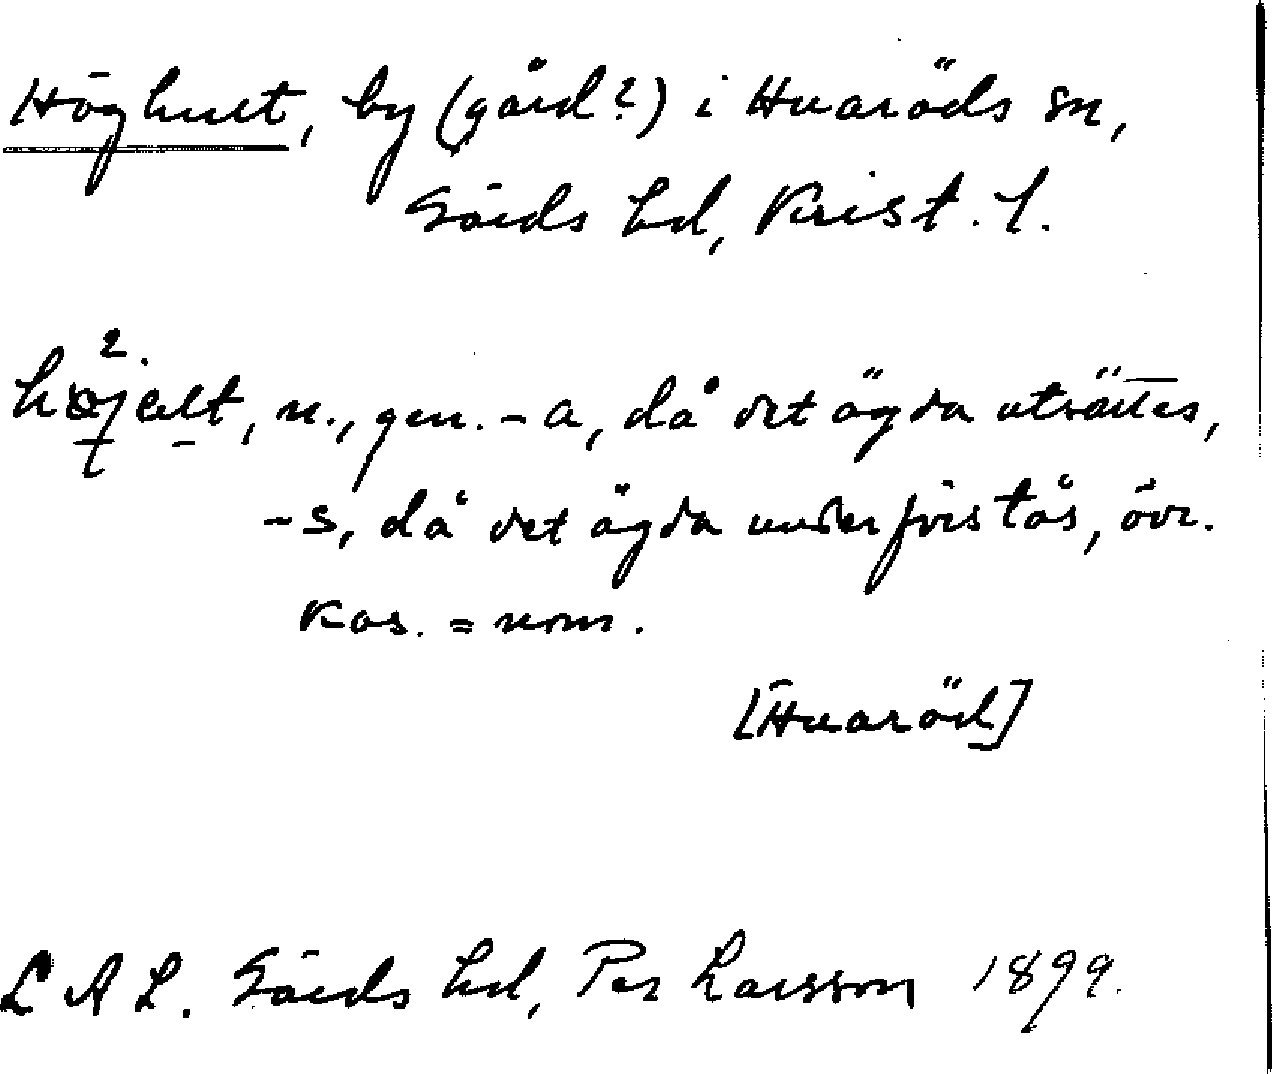 Höghult, by (gård?) i Huaröds sn,
Gärds hd, Krist. l.
n., gen. -a, då det ägda utsättes,
-s, då det ägda underförstås, övr.
kas. = nom.
[Huaröd]
L A L. Gärds hd, Per Larsson 1899.